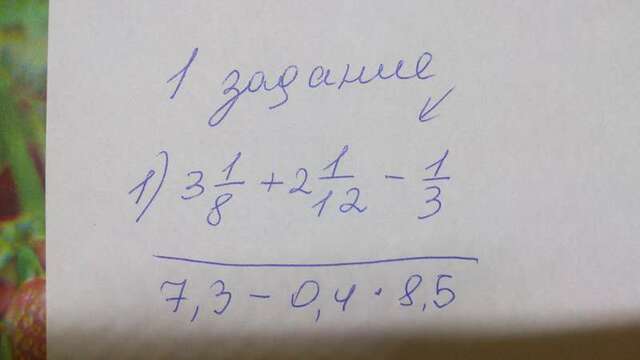 1 задание
1) 3 1/8 + 2 1/12 - 1/3
7,3 - 0,4 · 8,5